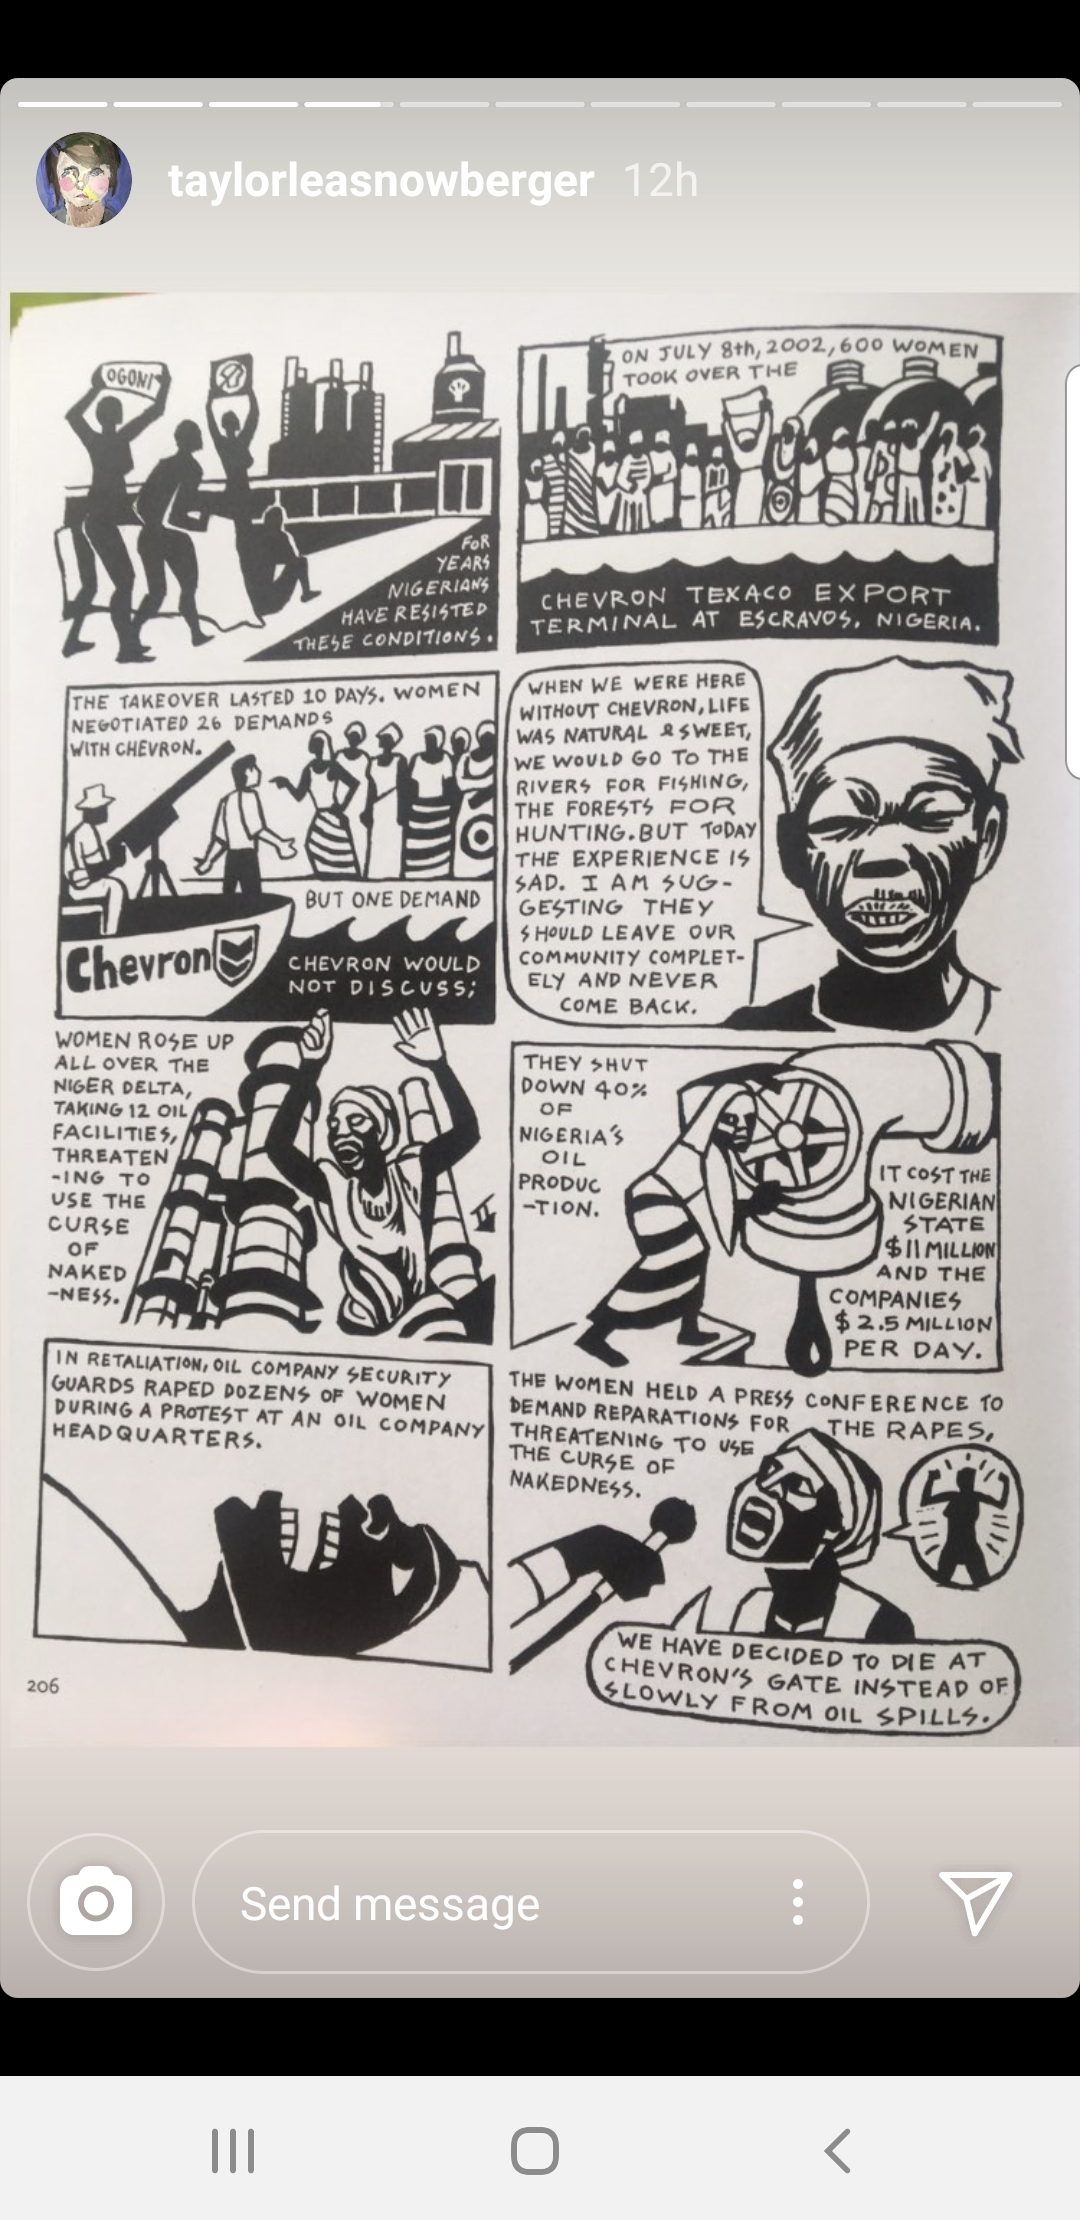 taylorleasnowberger 12h
OGONI
FOR
YEARS
NIGERIANS
HAVE RESISTED
THESE CONDITIONS.
ON JULY 8th, 2002, 600 WOMEN
TOOK OVER THE
CHEVRON TEXACO EXPORT
TERMINAL AT ESCRAVOS, NIGERIA.
THE TAKEOVER LASTED 10 DAYS. WOMEN
NEGOTIATED 26 DEMANDS
WITH CHEVRON.
BUT ONE DEMAND
Chevron
CHEVRON WOULD
NOT DISCUSS;
WHEN WE WERE HERE
WITHOUT CHEVRON, LIFE
WAS NATURAL & SWEET,
WE WOULD GO TO THE
RIVERS FOR FISHING,
THE FORESTS FOR
HUNTING. BUT TODAY
THE EXPERIENCE IS
SAD. I AM SUG-
GESTING THEY
SHOULD LEAVE OUR
COMMUNITY COMPLET-
ELY AND NEVER
COME BACK.
WOMEN ROSE UP
ALL OVER THE
NIGER DELTA,
TAKING 12 OIL
FACILITIES,
THREATEN
-ING TO
USE THE
CURSE
OF
NAKED
-NESS.
THEY SHUT
DOWN 40%
OF
NIGERIA'S
OIL
PRODUC
-TION.
IT COST THE
NIGERIAN
STATE
$11 MILLION
AND THE
COMPANIES
$2.5 MILLION
PER DAY.
IN RETALIATION, OIL COMPANY SECURITY
GUARDS RAPED DOZENS OF WOMEN
DURING A PROTEST AT AN OIL COMPANY
HEADQUARTERS.
THE WOMEN HELD A PRESS CONFERENCE TO
DEMAND REPARATIONS FOR THE RAPES,
THREATENING TO USE
THE CURSE OF
NAKEDNESS.
WE HAVE DECIDED TO DIE AT
CHEVRON'S GATE INSTEAD OF
SLOWLY FROM OIL SPILLS.
206
Send message